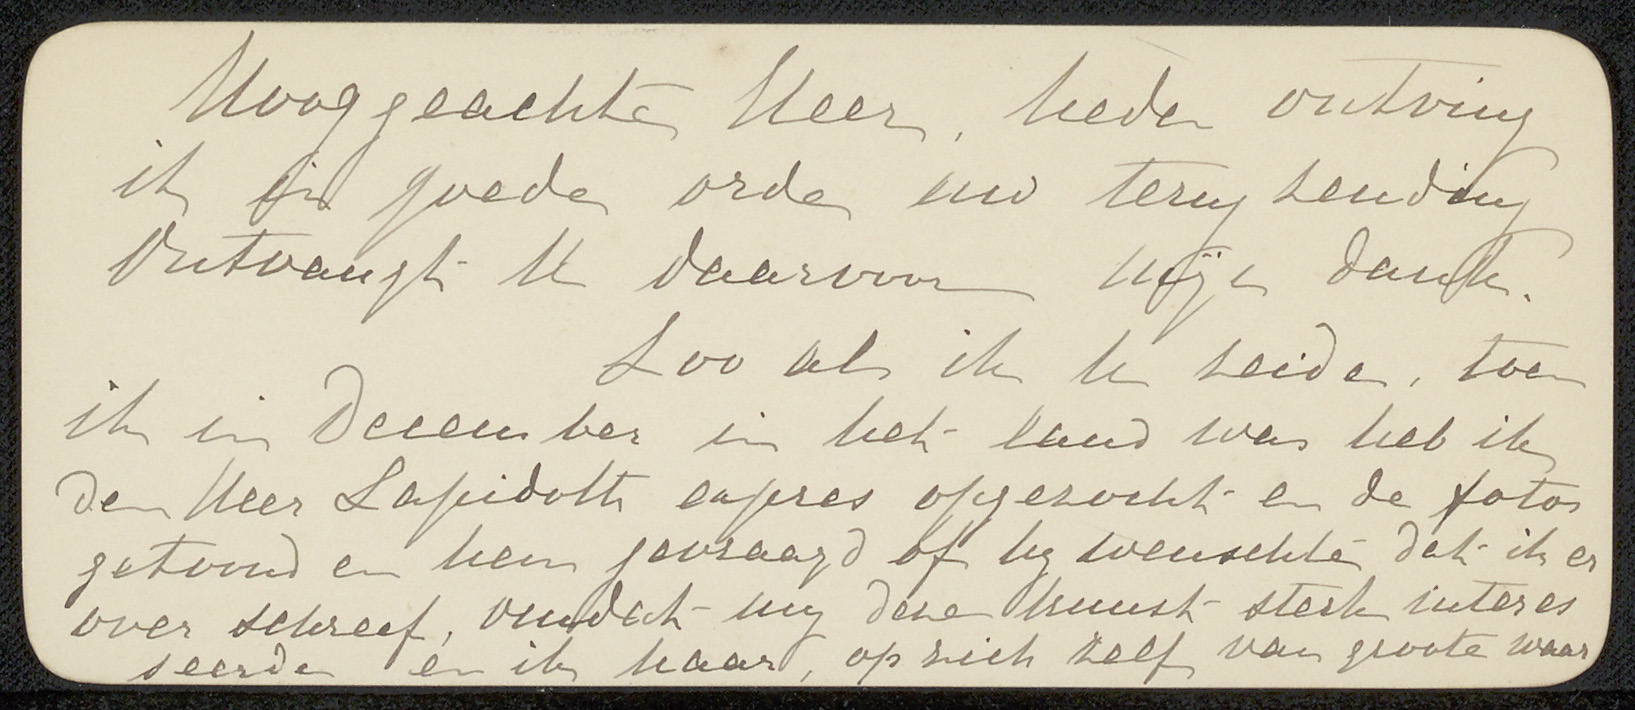 Hooggeachte Heer, heden ontving
ik in goede orde uw terugzending
Ontvangt U daarvoor mijn dank.
Zoo als ik U zeide, toen
ik in December in het land was heb ik
den Heer Lapidoth expres opgezocht en de fotos
getoond en hem gevraagd of hy wenschte dat ik er
over schreef, omdat my deze kunst sterk interes
seerde en ik haar, op zich zelf van groote waar